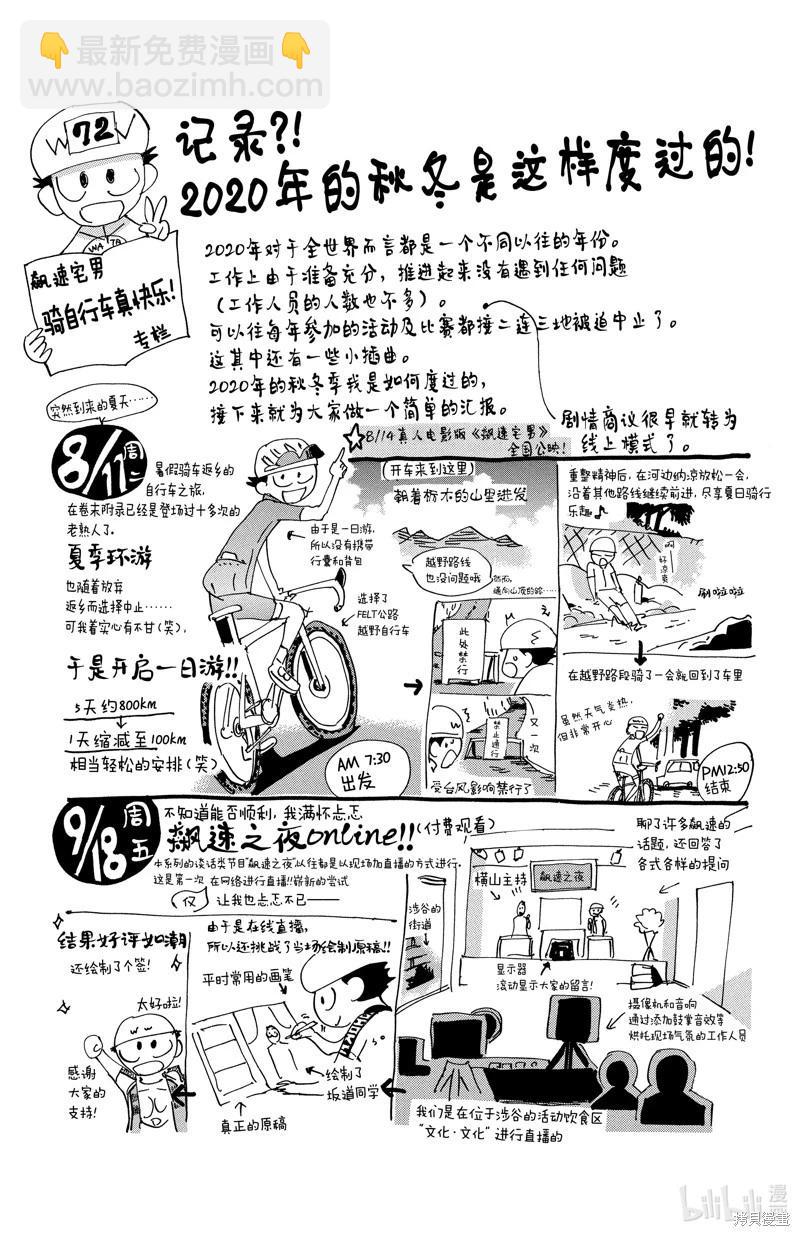 最新免费漫画
www.baozimh.com
72
WA TA
飙速宅男
骑自行车真快乐!
专栏
记录?!
2020年的秋冬是这样度过的!
2020年对于全世界而言都是一个不同以往的年份。
工作上由于准备充分，推进起来没有遇到任何问题
（工作人员的人数也不多）。
可以往每年参加的活动及比赛都接二连三地被迫中止了。
这其中还有一些小插曲。
2020年的秋冬季我是如何度过的，
接下来就为大家做一个简单的汇报。
剧情商议很早就转为
线上模式了。
突然到来的夏天……
8/11周二
暑假骑车返乡的
自行车之旅，
在卷末附录已经是登场过十多次的
老熟人了。
夏季环游
也随着放弃
返乡而选择中止……
可我着实心有不甘(笑)，
于是开启一日游!!
5天约800km
1天缩减至100km
相当轻松的安排(笑)
由于是一日游，
所以没有携带
行囊和背包
选择了
FELT公路
越野自行车
AM 7:30
出发
8/14真人电影版《飙速宅男》
全国公映!
(开车来到这里)
朝着枥木的山里进发
越野路线
也没问题哦
然而，
通向山顶的路……
此处禁行
又一次
禁止通行
受台风影响禁行了
重整精神后，在河边纳凉放松一会，
沿着其他路线继续前进，尽享夏日骑行
乐趣♪
啊
好凉爽
唰啦啦
在越野路段骑了一会就回到了车里
虽然天气炎热，
但非常开心
PM12:50
结束
9/18周五
不知道能否顺利，我满怀忐忑
飙速之夜online!!(付费观看)
本系列的谈话类节目"飙速之夜"以往都是以现场加直播的方式进行，
这是第一次 仅在网络进行直播!!崭新的尝试
让我也忐忑不已——
结果好评如潮
还绘制了个签!
太好啦!
感谢
大家的
支持!
由于是在线直播，
所以还挑战了当场绘制原稿!!
平时常用的画笔
绘制了
坂道同学
真正的原稿
聊了许多飙速的
话题，还回答了
各式各样的提问
横山主持
飙速之夜
涉谷的
街道
显示器
滚动显示大家的留言!
摄像机和音响
通过添加鼓掌音效等
烘托现场气氛的工作人员
我们是在位于涉谷的活动饮食区
"文化·文化"进行直播的
bilibili 漫画
拷貝漫畫